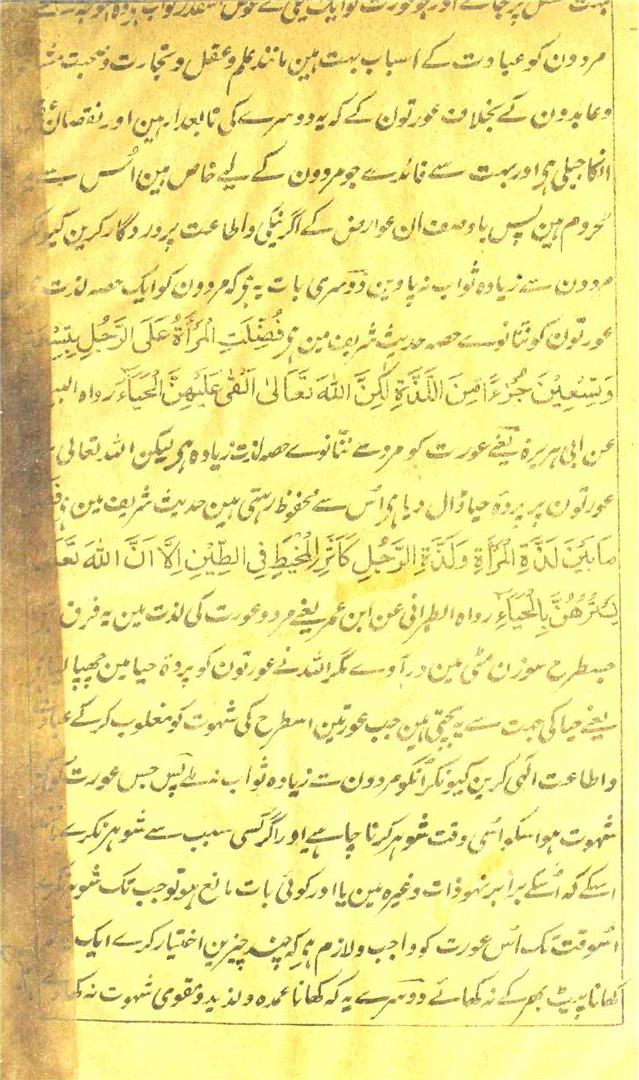 مردون کو عبادت کے اسباب بہت ہین مانند علم و عقل و تجارت و صحبت
و عابدون کے بخلاف عورتون کے کہ یہ دوسرے کی تابعدار ہین اور نقصان
انکا جبلی ہی اور بہت سے فائدے جو مردون کے لیے خاص ہین اُس سے
محروم ہین پس باوصف ان عوارض کے اگر نیکی و اطاعت پروردگار کرین کیونکر
مردون سے زیادہ ثواب نہ پاوین دوسری بات یہ ہی کہ مردون کو ایک حصہ لذت
عورتون کو ننانوے حصہ حدیث شریف مین ہی فُضِّلَتِ الْمَرْأَةُ عَلَى الرَّجُلِ بِتِسْعَةٍ
وَتِسْعِيْنَ جُزْءًا مِنَ اللَّذَّةِ لٰكِنَّ اللهَ تَعَالىٰ اَلْقىٰ عَلَيْهِنَّ الْحَيَاءَ رواہ
عن ابی ہریرۃ یعنے عورت کو مرد سے ننانوے حصہ لذت زیادہ ہی لیکن اللہ تعالی
عورتون پر پردۂ حیا ڈال دیا ہی اُس سے محفوظ رہتی ہین حدیث شریف مین ہی
مَا بَيْنَ لَذَّةِ الْمَرْأَةِ وَلَذَّةِ الرَّجُلِ كَاَثَرِ الْمَخِيْطِ فِى الطِّيْنِ اِلَّا اَنَّ اللهَ
يَسْتُرُهُنَّ بِالْحَيَاءِ رواہ الطبرانی عن ابن عمر یعنے مرد و عورت کی لذت مین یہ فرق
جسطرح سوزن مٹی مین در آوے مگر اللہ نے عورتون کو پردۂ حیا مین چھپا لیا
یعنے حیا کی جہت سے یہ بچتی ہین جب عورتین اسطرح کی شہوت کو مغلوب کر کے عبادت
و اطاعت الٰہی کرین کیونکر اُنکو مردون سے زیادہ ثواب نہ ملے پس جس عورت کو
شہوت ہو اسکو اسی وقت شوہر کرنا چاہیے اور اگر کسی سبب سے شوہر نکرے
اسکے کہ اُسکے برابر نہو ذات وغیرہ مین یا اور کوئی بات مانع ہو تو جب تک شوہر نکرے
اُسوقت تک اُس عورت کو واجب و لازم ہی کہ چند چیزین اختیار کرے ایک
کھانا پیٹ بھر کے نہ کھائے دوسرے یہ کہ کھانا عمدہ و لذیذ و مقوی شہوت نہ کھائے